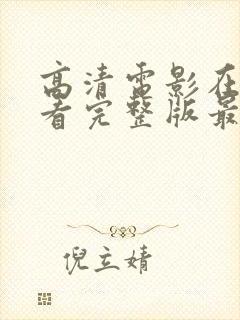 高清电影在
看完整版最
倪立婧